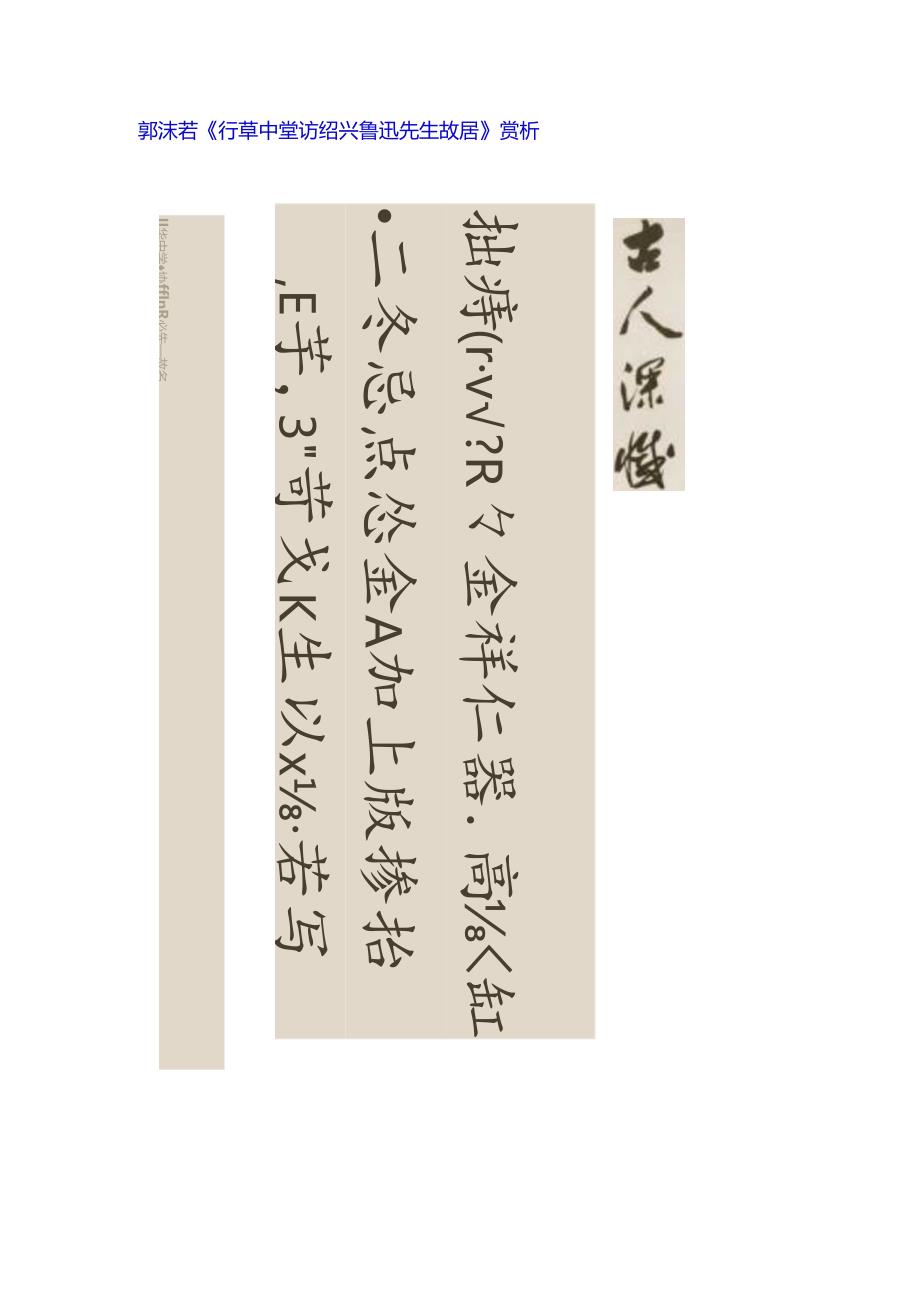 郭沫若《行草中堂访绍兴鲁迅先生故居》赏析
古人深懺
拙痔(r·v√?R⺈金祥仁器.高⅛<缸
•二冬忌点怂金A加上版掺抬
,E芋,3"苛戈K生以x⅛·若写